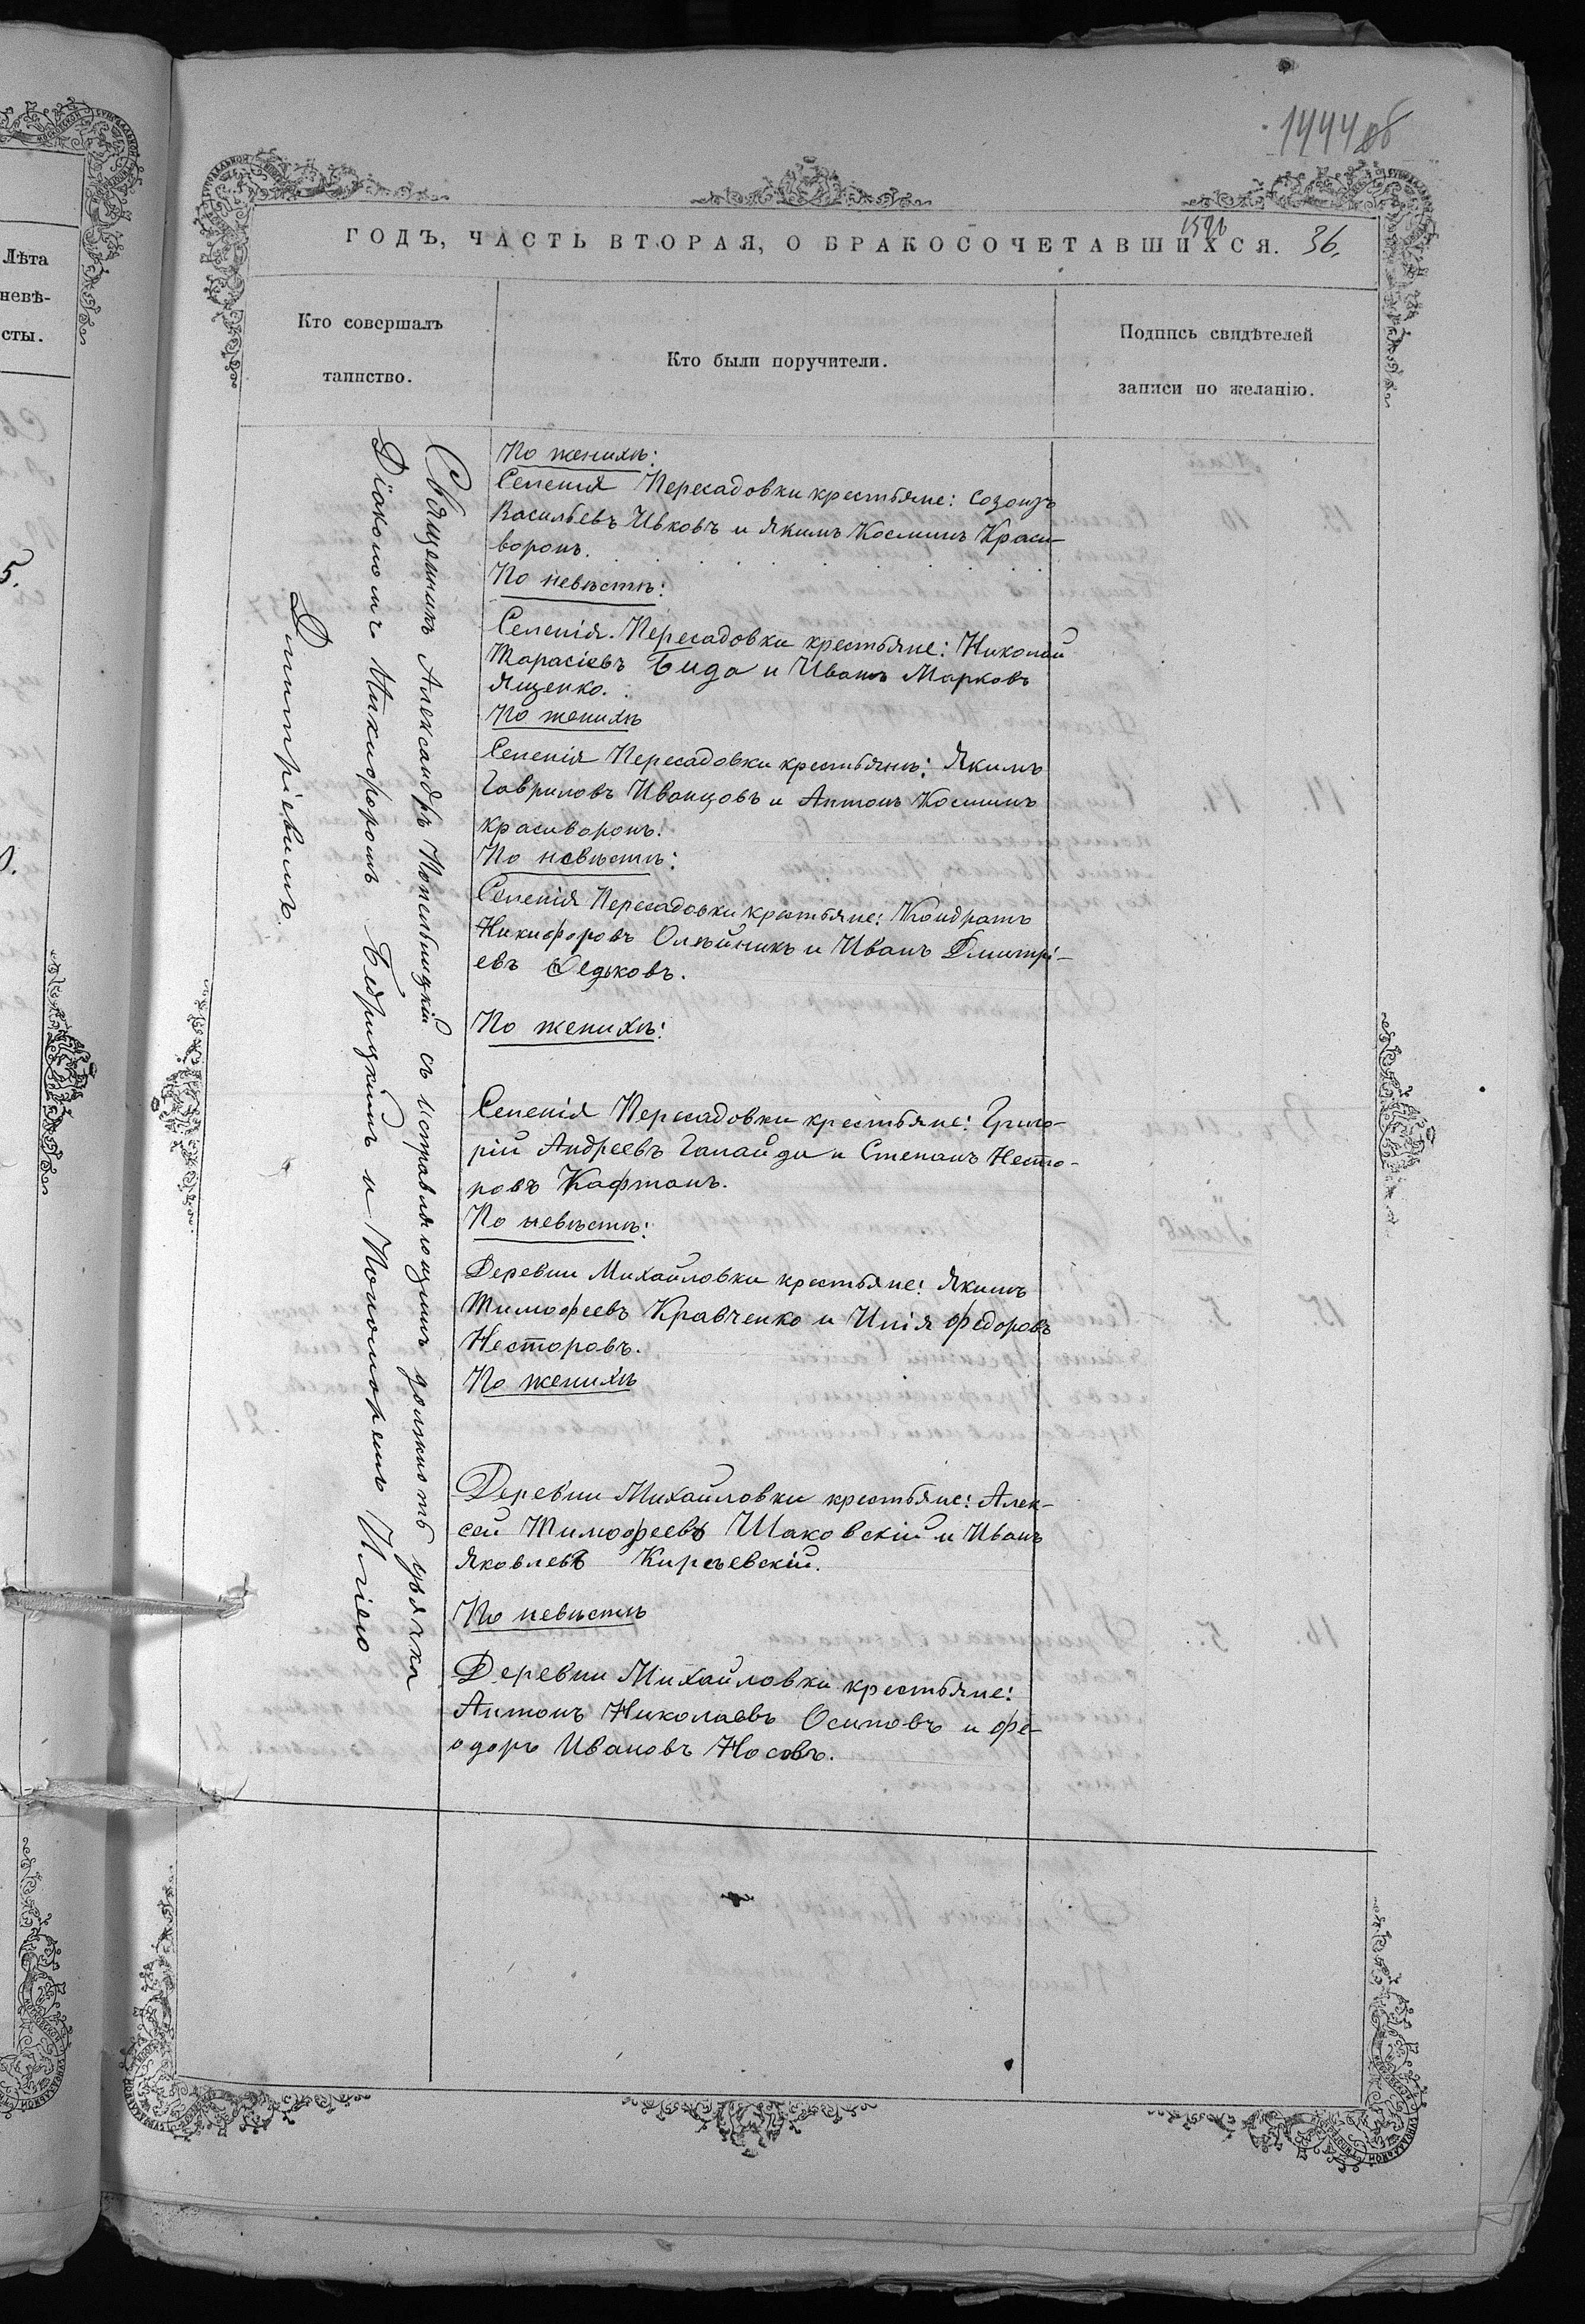 Лѣта
невѣ-
сты.
1444 об
1591
ГОДЪ, ЧАСТЬ ВТОРАЯ, О БРАКОСОЧЕТАВШИХСЯ. 36.
Кто совершалъ
таинство.
Кто были поручители.
Подпись свидѣтелей
записи по желанію.
Священникъ Александръ Копельницкій съ исправляющимъ должность дьячка
Діакономъ Никифоромъ Бедрицкимъ и Пономаремъ Иліею
Димитріевымъ.
По женихѣ:
Селенія Пересадовки крестьяне: Созонъ
Васильевъ Ивковъ и Якимъ Косминъ Краси-
воронъ.
По невѣстѣ:
Селенія Пересадовки крестьяне: Николай
Тарасіевъ Бида и Иванъ Марковъ
Ященко.
По женихѣ
Селенія Пересадовки крестьянѣ: Якимъ
Гавриловъ Иванцовъ и Антонъ Косминъ
Красиворонъ.
По невѣстѣ:
Селенія Пересадовки крестьяне: Кондратъ
Никифоровъ Олѣйникъ и Иванъ Дмитрі-
евъ Федьковъ.
По женихѣ:
Селенія Пересадовки крестьяне: Григо-
рій Андреевъ Галайда и Степанъ Несто-
ровъ Кафтанъ.
По невѣстѣ:
Деревни Михайловки крестьяне: Якимъ
Тимофеевъ Кравченко и Илія Федоровъ
Несторовъ.
По женихѣ
Деревни Михайловки крестьяне: Алек-
сей Тимофеевъ Шаковскій и Иванъ
Яковлевъ Кирѣевскій.
По невѣстѣ
Деревни Михайловки крестьяне:
Антонъ Николаевъ Осиповъ и Фе-
одоръ Ивановъ Носовъ.